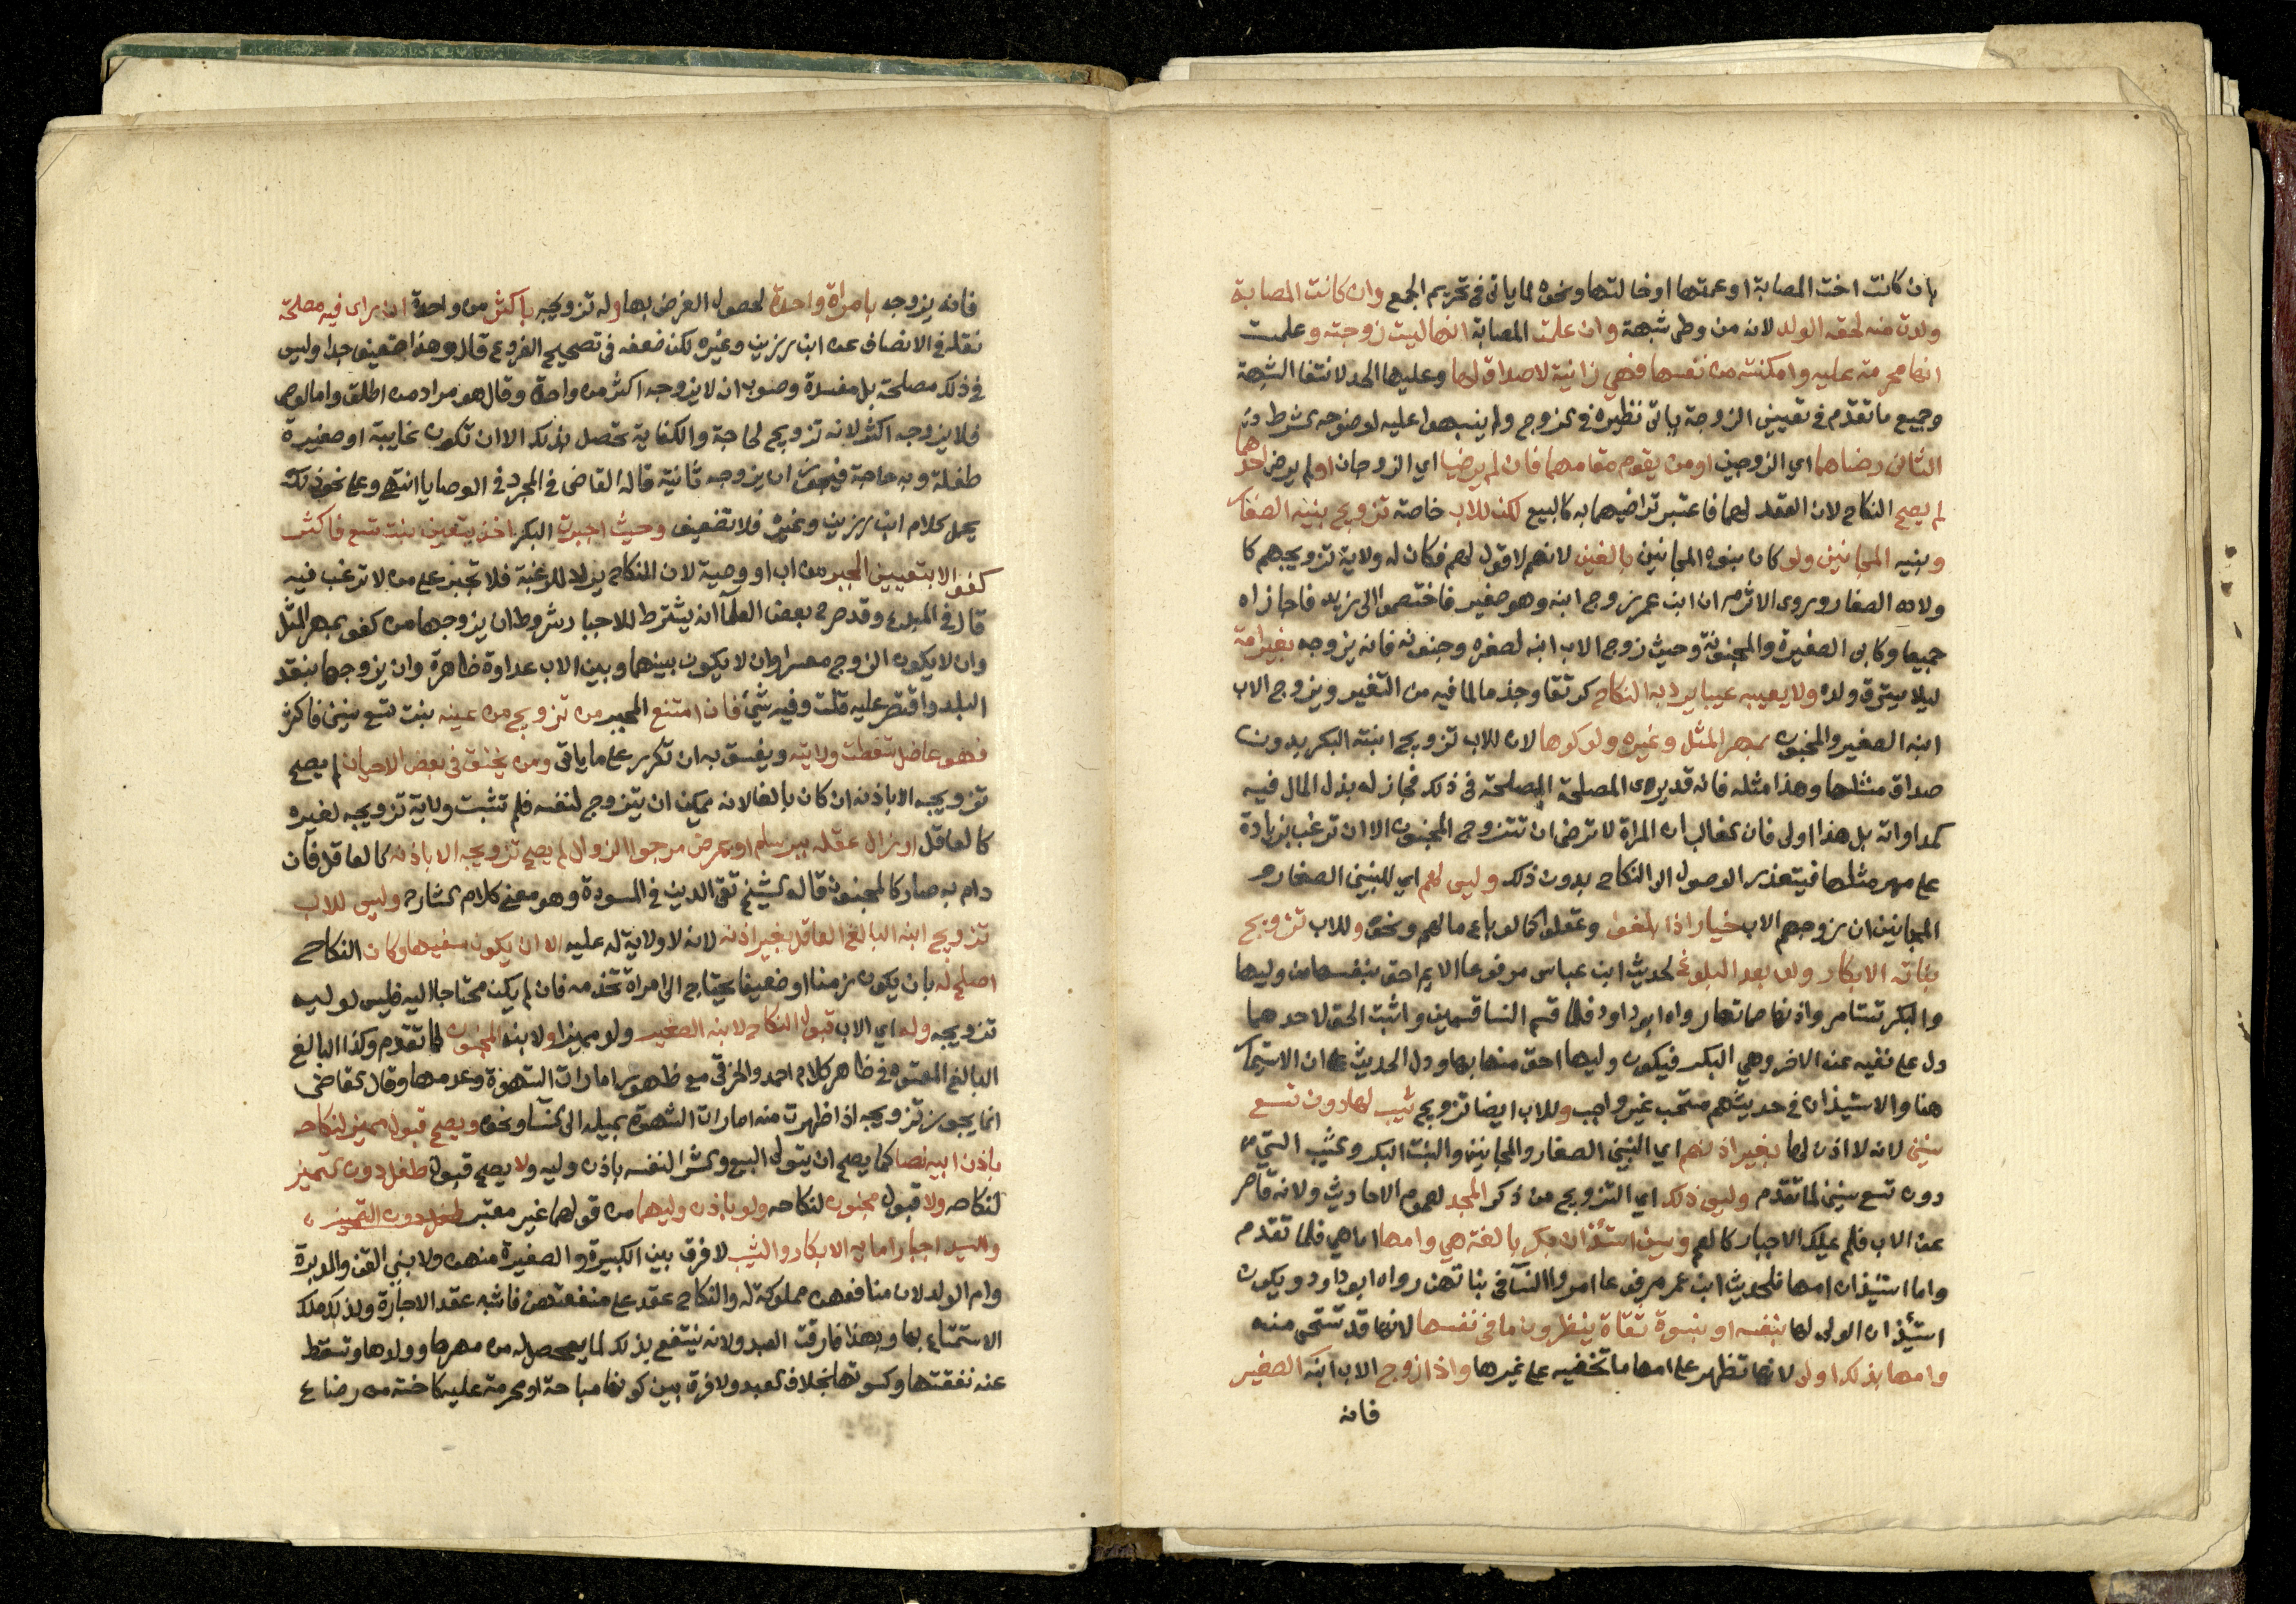 بان كانت اخت المصابة او عمتها او خالتها ونحوه لما ياتي في تحريم الجمع وان كانت المصابة
ولدت منه لحقه الولد لانه من وطئ شبهة وان علمت المصابة انها ليست زوجته وعلمت
انها محرمة عليه وامكنته من نفسها فهي زانية لا صداق لها وعليها الحد لانتفا الشبهة
وجميع ما تقدم في تعيين الزوجة ياتي نظيره في الزوج ولم ينبهوا عليه لوضوحه الشرط
الثاني رضاهما اي الزوجين او من يقوم مقامهما فان لم يرضيا اي الزوجان او لم يرض احدهما
لم يصح النكاح لان العقد لهما فاعتبر تراضيهما به كالبيع لكن للاب خاصة تزويج بنيه الصغار
وبنيه المجانين ولو كان بنوه المجانين بالغين لانهم لا قول لهم فكان له ولاية تزويجهم كا
ولاده الصغار وروى الاثرم ان ابن عمر زوج ابنه وهو صغير فاختصموا الى زيد فاجازاه
جميعا وكاب الصغيرة والمجنونة وحيث زوج الاب ابنه لصغره وجنونه فانه يزوجه بغير امة
ليلا يسترق ولده ولا بمعيبة عيبا يرد به النكاح كرتقا وجذما لما فيه من التنفير ويزوج الاب
ابنه الصغير والمجنون بمهر المثل وغيره ولو كرها لان للاب تزويج ابنته البكر بدون
صداق مثلها وهذا مثله فانه قد يرى المصلحة المصلحة في ذلك فجاز له بذل المال فيه
كمداواته بل هذا اولى فان الغالب ان المراة لا ترضى ان تتزوج المجنون الا ان ترغب بزيادة
على مهر مثلها فيتعذر الوصول الى النكاح بدون ذلك وليس لهم اي للبنين الصغار و
المجانين ان زوجهم الاب خيار اذا بلغوا وعقلوا كما لو باع مالهم ونحوه وللاب تزويج
بناته الابكار ولو بعد البلوغ لحديث ابن عباس مرفوعا الايم احق بنفسها من وليها
والبكر تستامر واذنها صماتها رواه ابو داود فلما قسم النسا قسمين واثبت الحق لاحدهما
دل على نفيه عن الاخر وهي البكر فيكون وليها احق منها بها ودل الحديث على ان الاستيمار
هنا والاستيذان في حديثهم مستحب غير واجب وللاب ايضا تزويج ثيب لها دون تسع
سنين لانه لا اذن لها بغير اذنهم اي البنين الصغار والمجانين والبنت البكر والثيب التي
دون تسع سنين لما تقدم وليس ذلك اي التزويج من ذكر للجد لعموم الاحاديث ولانه قاصر
عن الاب فلم يملك الاجبار كالعم ويسن استئذان بكر بالغة هي وامها اما هي فلما تقدم
واما استيذان امها فلحديث ابن عمر مرفوعا امروا النسآ في بناتهن رواه ابو داود ويكون
استئذان الولي لها بنفسه او بنسوة ثقاة ينظرون ما في نفسها لانها قد تستحي منه
وامها بذلك اولى لانها تطلع على امها ما تخفيه على غيرها واذا زوج الاب ابنه الصغير
فانه
فانه يزوجه بامراة واحدة لحصول الغرض بها وله تزويجه باكثر من واحدة ان راى فيه مصلحة
نقله في الانصاف عن ابن رزين وغيره لكن ضعفه في تصحيح الفروع قال وهذا ضعيف جدا وليس
في ذلك مصلحة بل مفسدة وصوب ان لا يزوجه اكثر من واحدة وقال هو مراد من اطلق واما الوصي
فلا يزوجه اكثر لانه تزويج لحاجة والكفاية تحصل بذلك الا ان تكون غايبة او صغيرة
طفلة وبه حاجة فيجوز ان يزوجه ثانية قاله القاضي في المجرد في الوصايا انتهى وعلى نحو ذلك
يحمل كلام ابن رزين وغيره فلا تضعيف وحيث اجبرت البكر اخذ بتعيين بنت تسع فاكثر
كفوا لا بتعيين المجبر من اب او وصية لان النكاح يراد للرغبة فلا تجبر على من لا ترغب فيه
قال في المبدع وقد صرح بعض العلمآ انه يشترط للاجبار شروط ان يزوجها من كفو بمهر المثل
وان لا يكون الزوج معسرا وان لا يكون بينها وبين الاب عداوة ظاهرة وان يزوجها بنقد
البلد واقتصر عليه قلت وفيه شئ فان امتنع المجبر من تزويج من عينه بنت تسع سنين فاكثر
فهو عاضل سقطت ولايته ويفسق به ان تكرر على ما ياتي ومن يخنق في بعض الاحيان لم يصح
تزويجه الا باذنه ان كان بالغا لانه يمكن ان يتزوج لنفسه فلم تثبت ولاية تزويجه لغيره
كالعاقل او زال عقله ببرسام او بمرض مرجو الزوال لم يصح تزويجه الا باذنه كالعاقل فان
دام به صار كالمجنون قاله الشيخ تقي الدين في المسودة وهو معنى كلام الشارح وليس للاب
تزويج ابنه البالغ العاقل بغير اذنه لانه لا ولاية له عليه الا ان يكون سفيها وكان النكاح
اصلح له بان يكون زمنا او ضعيفا يحتاج الى امراة تخدمه فان لم يكن محتاجا اليه فليس لوليه
تزويجه وله اي الاب قبول النكاح لابنه الصغير ولو مميزا ولابنه المجنون لما تقدم وكذا البالغ
البالغ المعتوه في ظاهر كلام احمد والخرقي مع ظهور امارات الشهوة وعدمها وقال القاضي
انما يجوز تزويجه اذا ظهرت منه امارات الشهوة بميله الى النسآ ونحوه ويصح قبول مميز لنكاحه
باذن ابيه نصا كما يصح ان يتولى البيع والشرا لنفسه باذن وليه ولا يصح قبول طفل دون التمييز
لنكاحه ولا قبول مجنون لنكاحه ولو باذن وليهما من قولهما غير معتبر طفل دون التمييز
والسيد اجبار امايه الابكار والثيب لا فرق بين الكبيرة والصغيرة منهن ولا بين القن والمدبرة
وام الولد لان منافعهن مملوكة له والنكاح عقد على منفعتهن فاشبه عقد الاجارة ولذلك ملك
الاستمتاع بها وبهذا فارقت العبد ولانه ينتفع بذلك لما يحصل له من مهرها وولدها وتسقط
عنه نفقتها وكسوتها بخلاف العبد ولا فرق بين كونها مباحة او محرمة عليه كاخته من رضاع